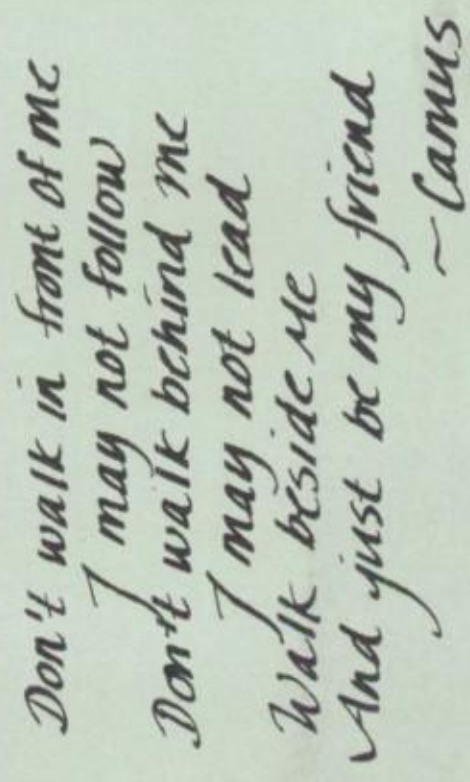 Don't walk in front of me
I may not follow
Don't walk behind me
I may not lead
Walk beside me
And just be my friend
~ Camus